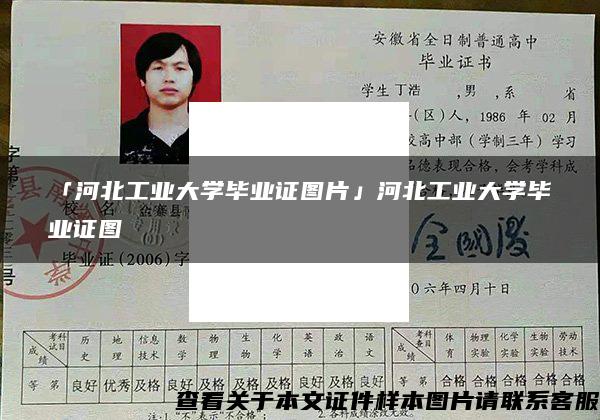 安徽省全日制普通高中
毕业证书
学生丁浩 ,男 ,系 省
(区)人, 1986 年 02 月
校高中部(学制三年)学习
品德表现合格,会考学科成
「河北工业大学毕业证图片」河北工业大学毕
业证图
校 名 金寨县
毕业证(2006)字
〇六年四月十日
成绩 考科试目 历史 地理 信息技术 数学 物理 生物 化学 英语 政治 语文
等 第 良好 优秀 及格 及格 及格 及格 及格 及格 良好 良好
成绩 考科查目 体育 物理实验 化学实验 生物实验 劳动技术
等第 合格 合格 合格 合格 合格
查看关于本文证件样本图片请联系客服
注:1."不"表示"不合格";
2.各科成绩涂改无效